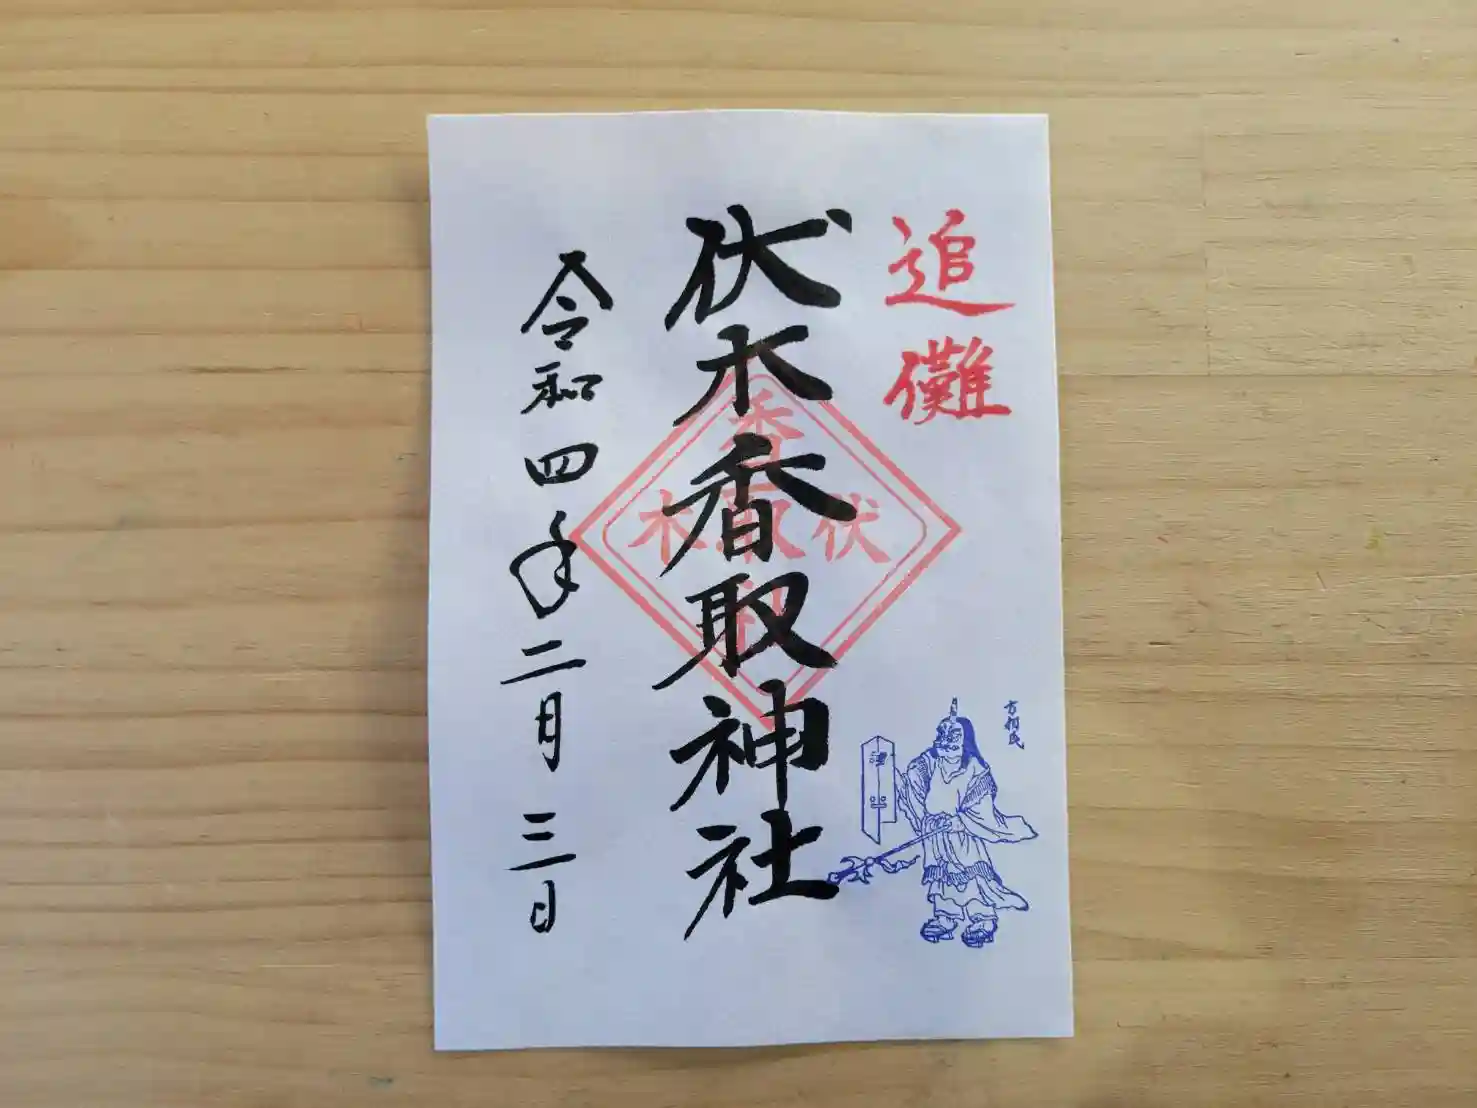 追儺
伏木香取神社
令和四年二月三日
香取
伏
木
方相氏